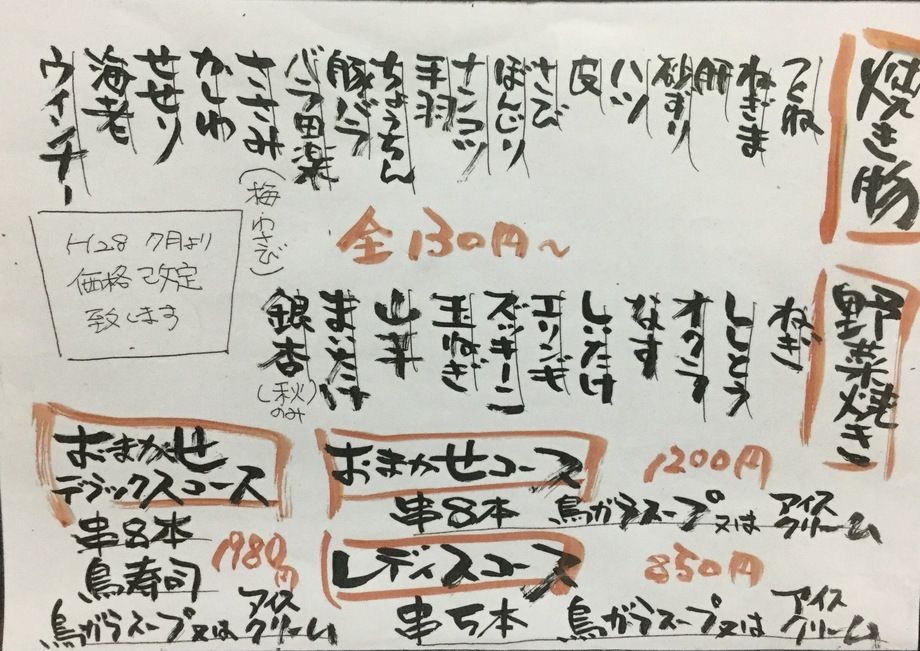 焼き物
つくね
ねぎま
肝
砂ずり
ハツ
皮
さび
ぼんじり
ナンコツ
手羽
ちょうちん
豚バラ
バラ田楽
ささみ
(梅わさび)
かしわ
せせり
海老
ウィンナー
全130円~
H28 7月より
価格改定
致します
野菜焼き
ねぎ
ししとう
オクラ
なす
しいたけ
エリンギ
ズッキーニ
玉ねぎ
山芋
まいたけ
銀杏
(秋のみ)
おまかせコース
1200円
串8本 鳥ガラスープ又はアイスクリーム
レディスコース
850円
串5本 鳥ガラスープ又はアイスクリーム
おまかせ
デラックスコース
串8本
1980円
鳥寿司
鳥ガラスープ又はアイスクリーム